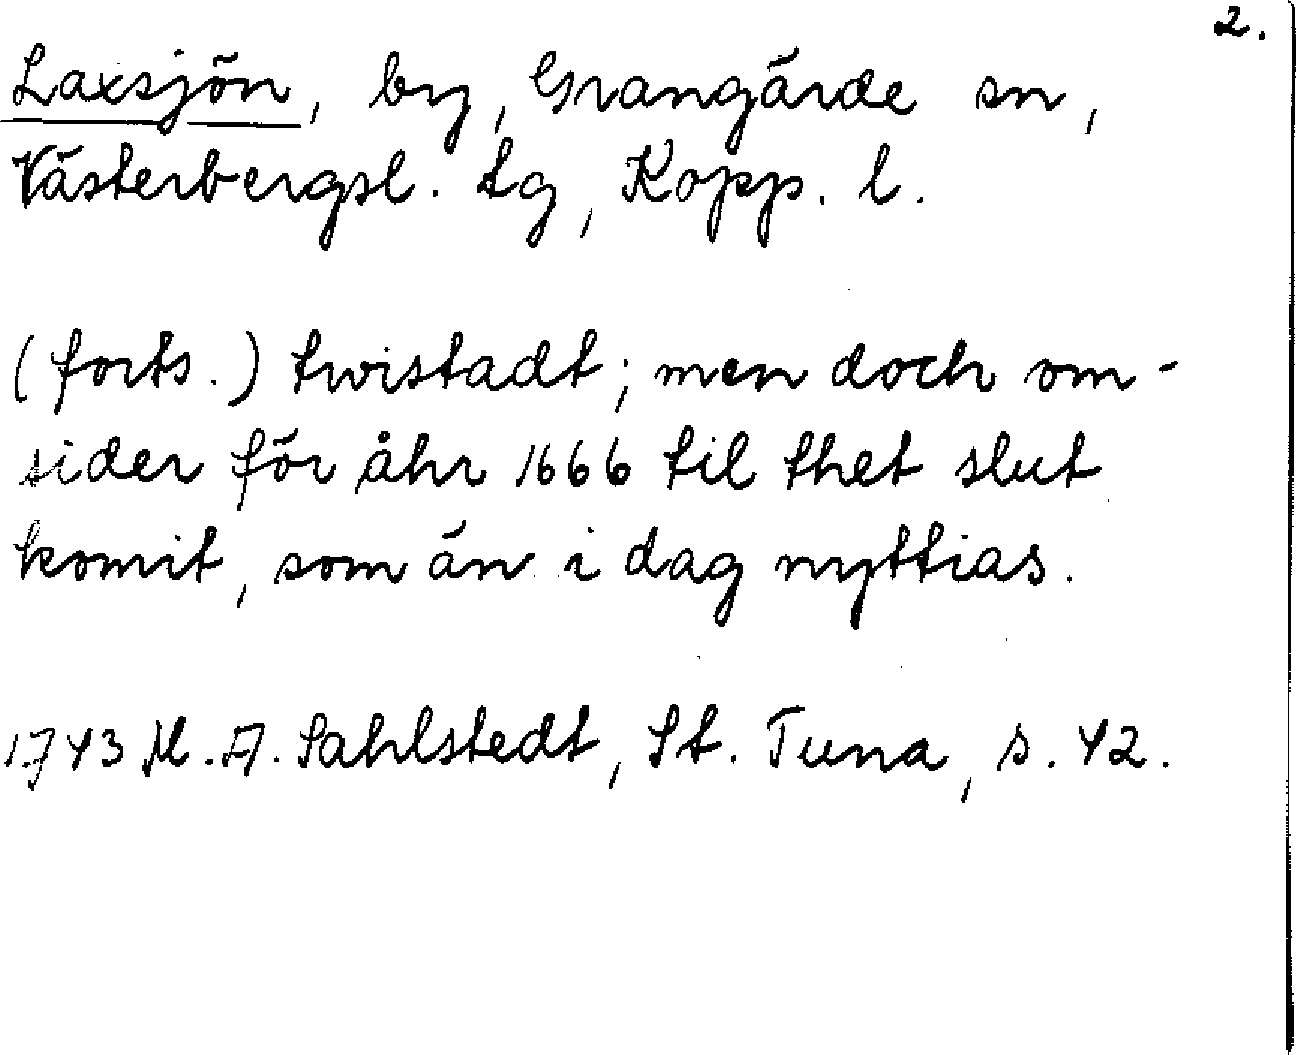 2.
Laxsjön, by, Grangärde sn,
Västerbergsl. tg, Kopp. l.
(forts.) twistadt; men doch om-
sider för åhr 1666 til thet slut
komit, som än i dag nyttias.
1743 M. A. Sahlstedt, St. Tuna, s. 42.